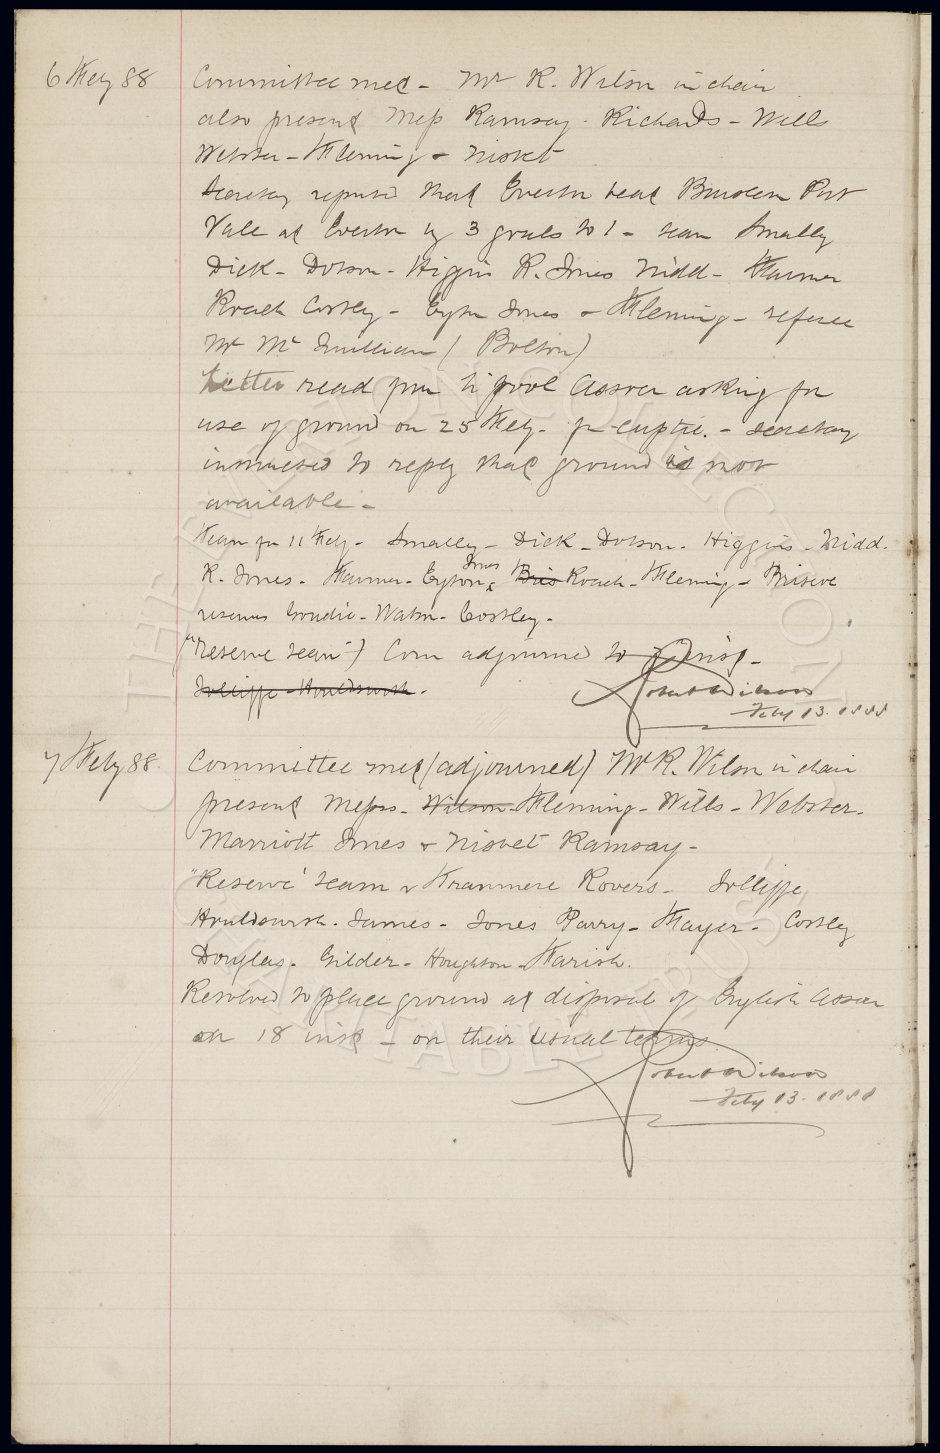 6 Feby 88 Committee met - Mr R. Wilson in chair
also present Mess Ramsay - Richards - Wills
Webster - Fleming & Nisbet
Secretary reported that Everton beat Burslem Port
Vale at Everton by 3 goals to 1 - team Smally
Dick - Dobson - Higgins R. Jones Nidd - Farmer
Roach Costley - Eyton Jones & Fleming - referee
Mr Mc (Bolton)
Letter read from L'pool Assocn asking for
use of ground on 25 Feby - for cup tie. - Secretary
instructed to reply that ground is not
available -
Team for 11 Feby - Smally - Dick - Dobson - Higgins - Nidd.
R. Jones - Farmer - Eyton Jones Bris Roach - Fleming - Briscoe
reserves Goudie - Watson - Costley -
("Reserve team") Com adjourned to 7 inst -
Jolliffe - Houldsworth -
Robert Wilson
Feby 13. 1888
7 Feby 88. Committee met (adjourned) Mr R. Wilson in chair
present Messrs - Watson - Fleming - Wills - Webster -
Marriott Jones & Nisbet Ramsay -
"Reserve" team v Tranmere Rovers - Jolliffe
Houldsworth - James - Jones Parry - Mayer - Costley
Douglas - Gilder - Houghton - Parish.
Resolved to place ground at disposal of English Assocn
on 18 inst - on their usual terms
Robert Wilson
Feby 13. 1888
THE EVERTON COLLECTION
CHARITABLE TRUST